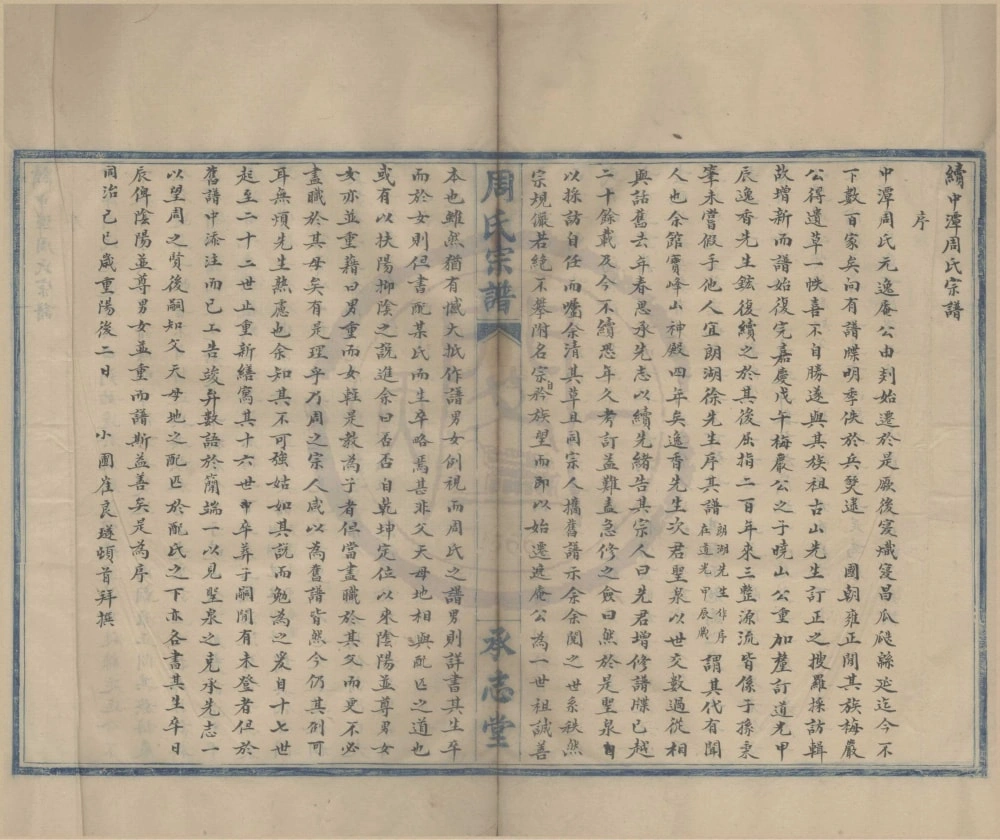 續中潭周氏宗譜
序
中潭周氏元逸庵公由剡始遷於是厥後寖熾寖昌瓜瓞綿延迄今不
下數百家矣向有譜牒明季佚於兵燹逮 國朝雍正間其族梅巖
公得遺草一帙喜不自勝遂與其族祖古山先生訂正之搜羅採訪輯
故增新而譜始復完嘉慶戊午梅巖公之子曉山公重加釐訂道光甲
辰逸香先生鋐復續之於其後屈指二百年來三整源流皆係子孫秉
筆未嘗假手他人宜朗湖徐先生序其譜朗湖先生作序在道光甲辰歲謂其代有聞
人也余館寶峰山神殿四年矣逸香先生次君聖泉以世交數過從相
與話舊去年春思承先志以續先緒告其宗人曰先君增修譜牒已越
二十餘載及今不續恐年久考訂益難盍急修之僉曰然於是聖泉自
以採訪自任而囑余清其草且同宗人攜舊譜示余余閱之世系秩然
宗規儼若絕不攀附名宗自矜族望而即以始遷逸庵公為一世祖誠善
周氏宗譜
承志堂
本也雖然猶有憾大抵作譜男女例視而周氏之譜男則詳書其生卒
而於女則但書配某氏而生卒略焉甚非父天母地相與配匹之道也
或有以扶陽抑陰之說進余曰否否自乾坤定位以來陰陽並尊男女
女亦並重藉曰男重而女輕是教為子者但當盡職於其父而更不必
盡職於其母矣有是理乎乃周之宗人咸以為舊譜皆然今仍其例可
耳無煩先生熟慮也余知其不可強姑如其說而勉為之爰自十七世
起至二十二世止重新繕寫其十六世中卒葬子嗣間有未登者但於
舊譜中添注而已工告竣弁數語於簡端一以見聖泉之克承先志一
以望周之賢後嗣知父天母地之配匹於配氏之下亦各書其生卒日
辰俾陰陽並尊男女並重而譜斯益善矣是為序
同治己巳歲重陽後二日 小圃崔良璲頓首拜撰